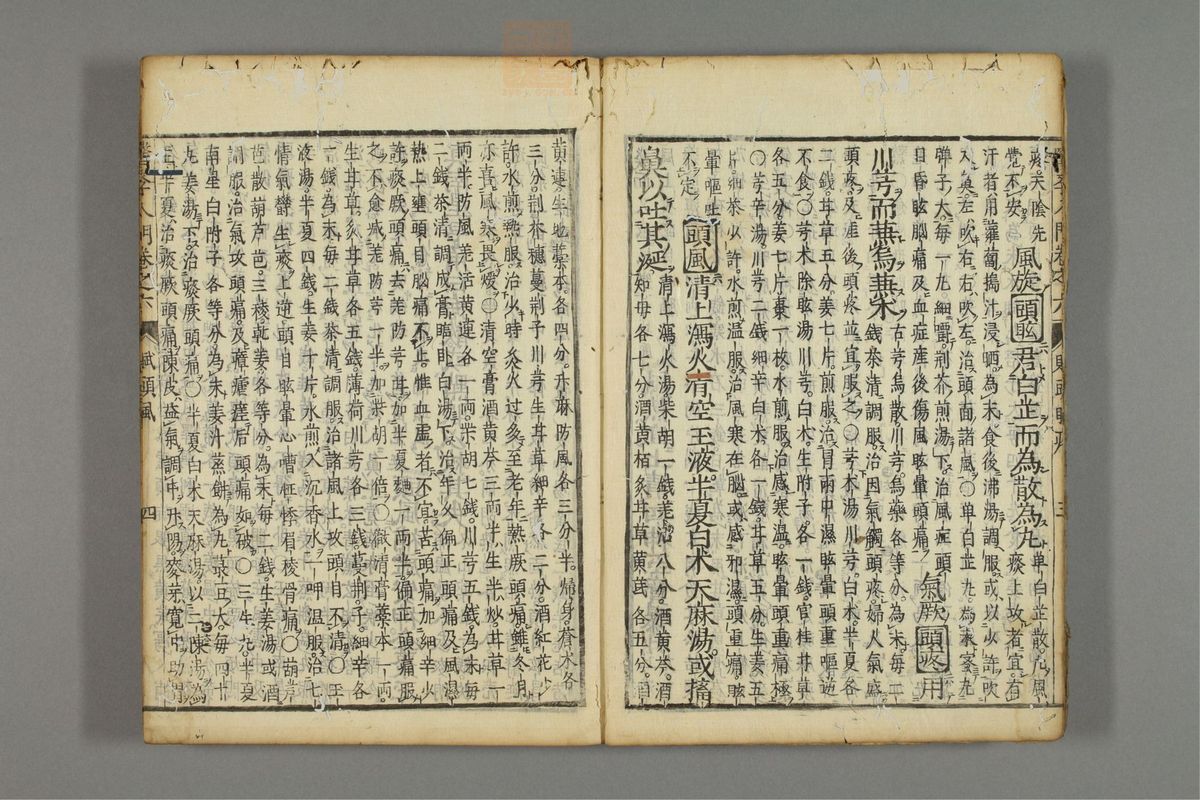 風旋頭眩君白芷而為散為丸
痰上攻者宜
汗者用蘿蔔搗汁浸晒為末食後沸湯調服或以少許吹
入鼻左吹右右吹左治頭面諸風〇單白芷丸為末蜜丸
彈子大每一丸細嚼荊芥煎湯下治風症頭
目昏眩腦痛及血症產後傷風眩暈頭痛
氣厥頭疼用
川芎而兼烏兼柴
古芎烏散川芎烏藥各等分為末每二
錢茶清調服治因氣觸頭疼婦人氣盛
頭疼及產後頭疼並宜服之〇芎朮湯川芎白朮半夏各
二錢甘草五分姜七片煎服治冒雨中濕眩暈頭重嘔逆
不食〇芎朮除眩湯川芎白朮生附子各一錢官桂甘草
各五分姜七片棗一枚水煎服治感寒濕眩暈頭重痛極
〇芎辛湯川芎二錢細辛白朮各一錢甘草五分生姜五
片細茶少許水煎温服治風寒在腦或感邪濕頭重痛眩
暈嘔吐
不定
頭風清上瀉火清空玉液半夏白朮天麻湯或搐
鼻以吐其涎
清上瀉火湯柴胡一錢羌活八分酒黃芩酒
知母各七分酒黃栢炙甘草黃芪各五分
黃連生地藁本各四分升麻防風各三分半歸身蒼朮各
三分荊芥穗蔓荊子川芎生甘草細辛各二分酒紅花少
許水煎熱服治少時灸火过多至老年熱厥頭痛雖冬月
亦喜風寒畏煖〇清空膏酒黃芩三兩半生半炒甘草一
兩半防風羌活黃連各一兩柴胡七錢川芎五錢為末每
二錢茶清調成膏臨臥白湯下治年久偏正頭痛及風濕
熱上壅頭目腦痛不止惟血虛者不宜苦頭痛加細辛少
許痰厥頭痛去羌防芎甘加半夏麯一兩半偏正頭痛服
之不愈減羌防芎一半加柴胡一倍〇微清膏藁本一兩
生甘草炙甘草各五錢薄荷川芎各三錢蔓荊子細辛各
一錢為末每二錢茶清調服治諸風上攻頭目不清〇玉
液湯半夏四錢生姜十片水煎入沉香水一呷温服治七
情氣鬱生痰上逆頭目眩暈心嘈怔悸眉稜骨痛〇葫芦
芭散葫芦芭三稜乾姜各等分為末每二錢生姜湯或酒
調服治氣攻頭痛及瘴瘧瘥后頭痛如破〇三生丸半夏
南星白附子各等分為末姜汁蒸餅為丸菉豆大每四十
丸姜湯下治痰厥頭痛〇半夏白朮天麻湯以二陳湯為
主半夏治痰厥頭痛陳皮益氣調中升陽麥芽寬中助胃
賦頭風
四